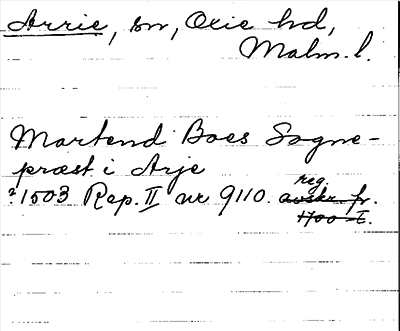 Arrie, sn, Oxie hd,
Malm. l.
Mortend Boes Sogne-
præst i Arje
?1503 Rep. II nr 9110. reg. avskr. fr.
1700-t.